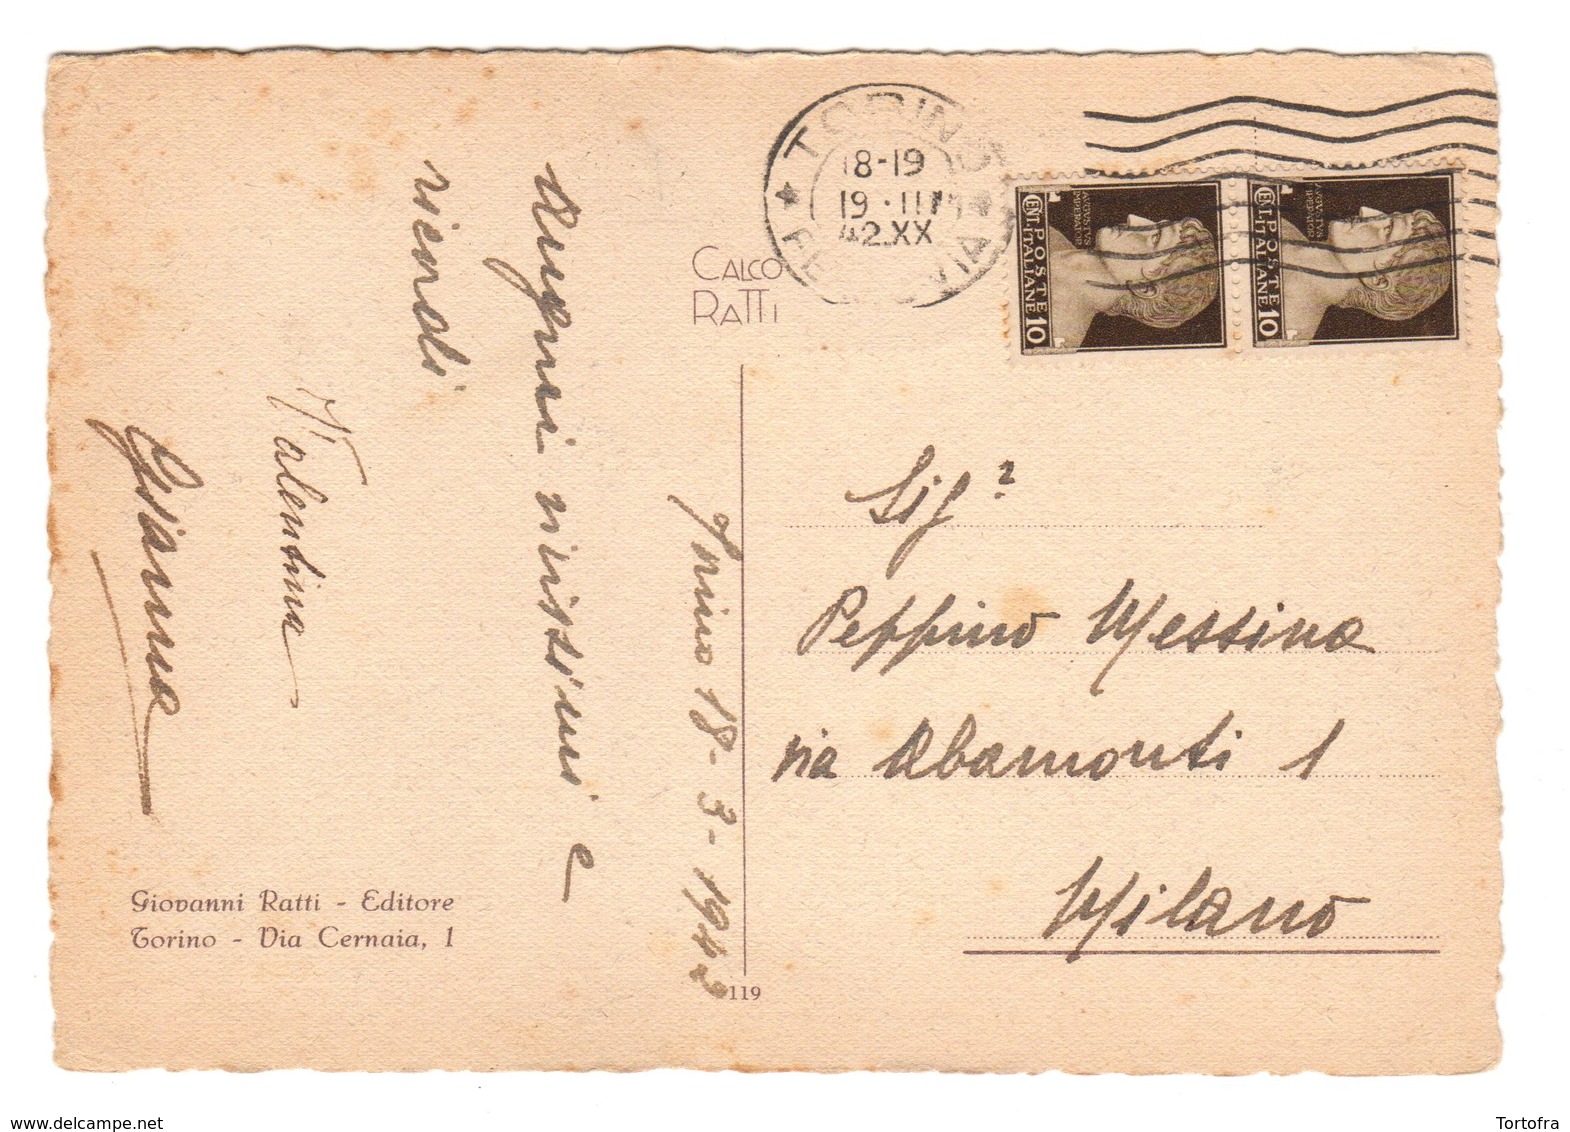 Torino 18-3-1942
Auguri vivissimi e
ricordi
Valentina
Gianna
Giovanni Ratti - Editore
Torino - Via Cernaia, 1
119
CALCO
RATTI
TORINO
FERROVIA
18-19
19·III
42.XX
CENT. 10
POSTE
ITALIANE
AVGVSTVS
IMPERATOR
CENT. 10
POSTE
ITALIANE
AVGVSTVS
IMPERATOR
Sig.
Peppino Messina
via Abamonti 1
Milano
www.delcampe.net
Tortofra